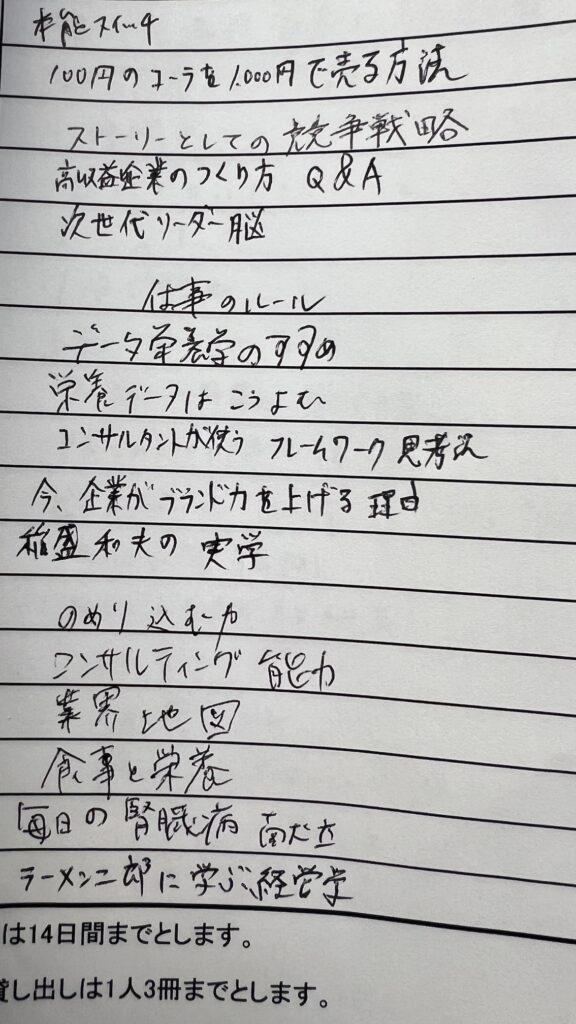 本能スイッチ
100円のコーラを1,000円で売る方法
ストーリーとしての競争戦略
高収益企業のつくり方 Q&A
次世代リーダー脳
仕事のルール
データ栄養学のすすめ
栄養データはこうよむ
コンサルタントが使うフレームワーク思考法
今、企業がブランド力を上げる理由
稲盛和夫の実学
のめり込む力
コンサルティング能力
業界地図
食事と栄養
毎日の腎臓病献立
ラーメン二郎に学ぶ経営学
は14日間までとします。
貸し出しは1人3冊までとします。